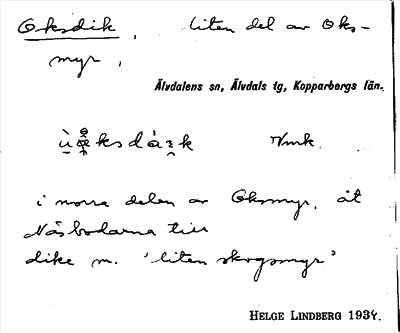 Oksdik, liten del av Oks-
myr,
Älvdalens sn, Älvdals tg, Kopparbergs län.
i norra delen av Oksmyr, åt
Näsbodarna till
dike n. 'liten skogsmyr'
HELGE LINDBERG 1934.